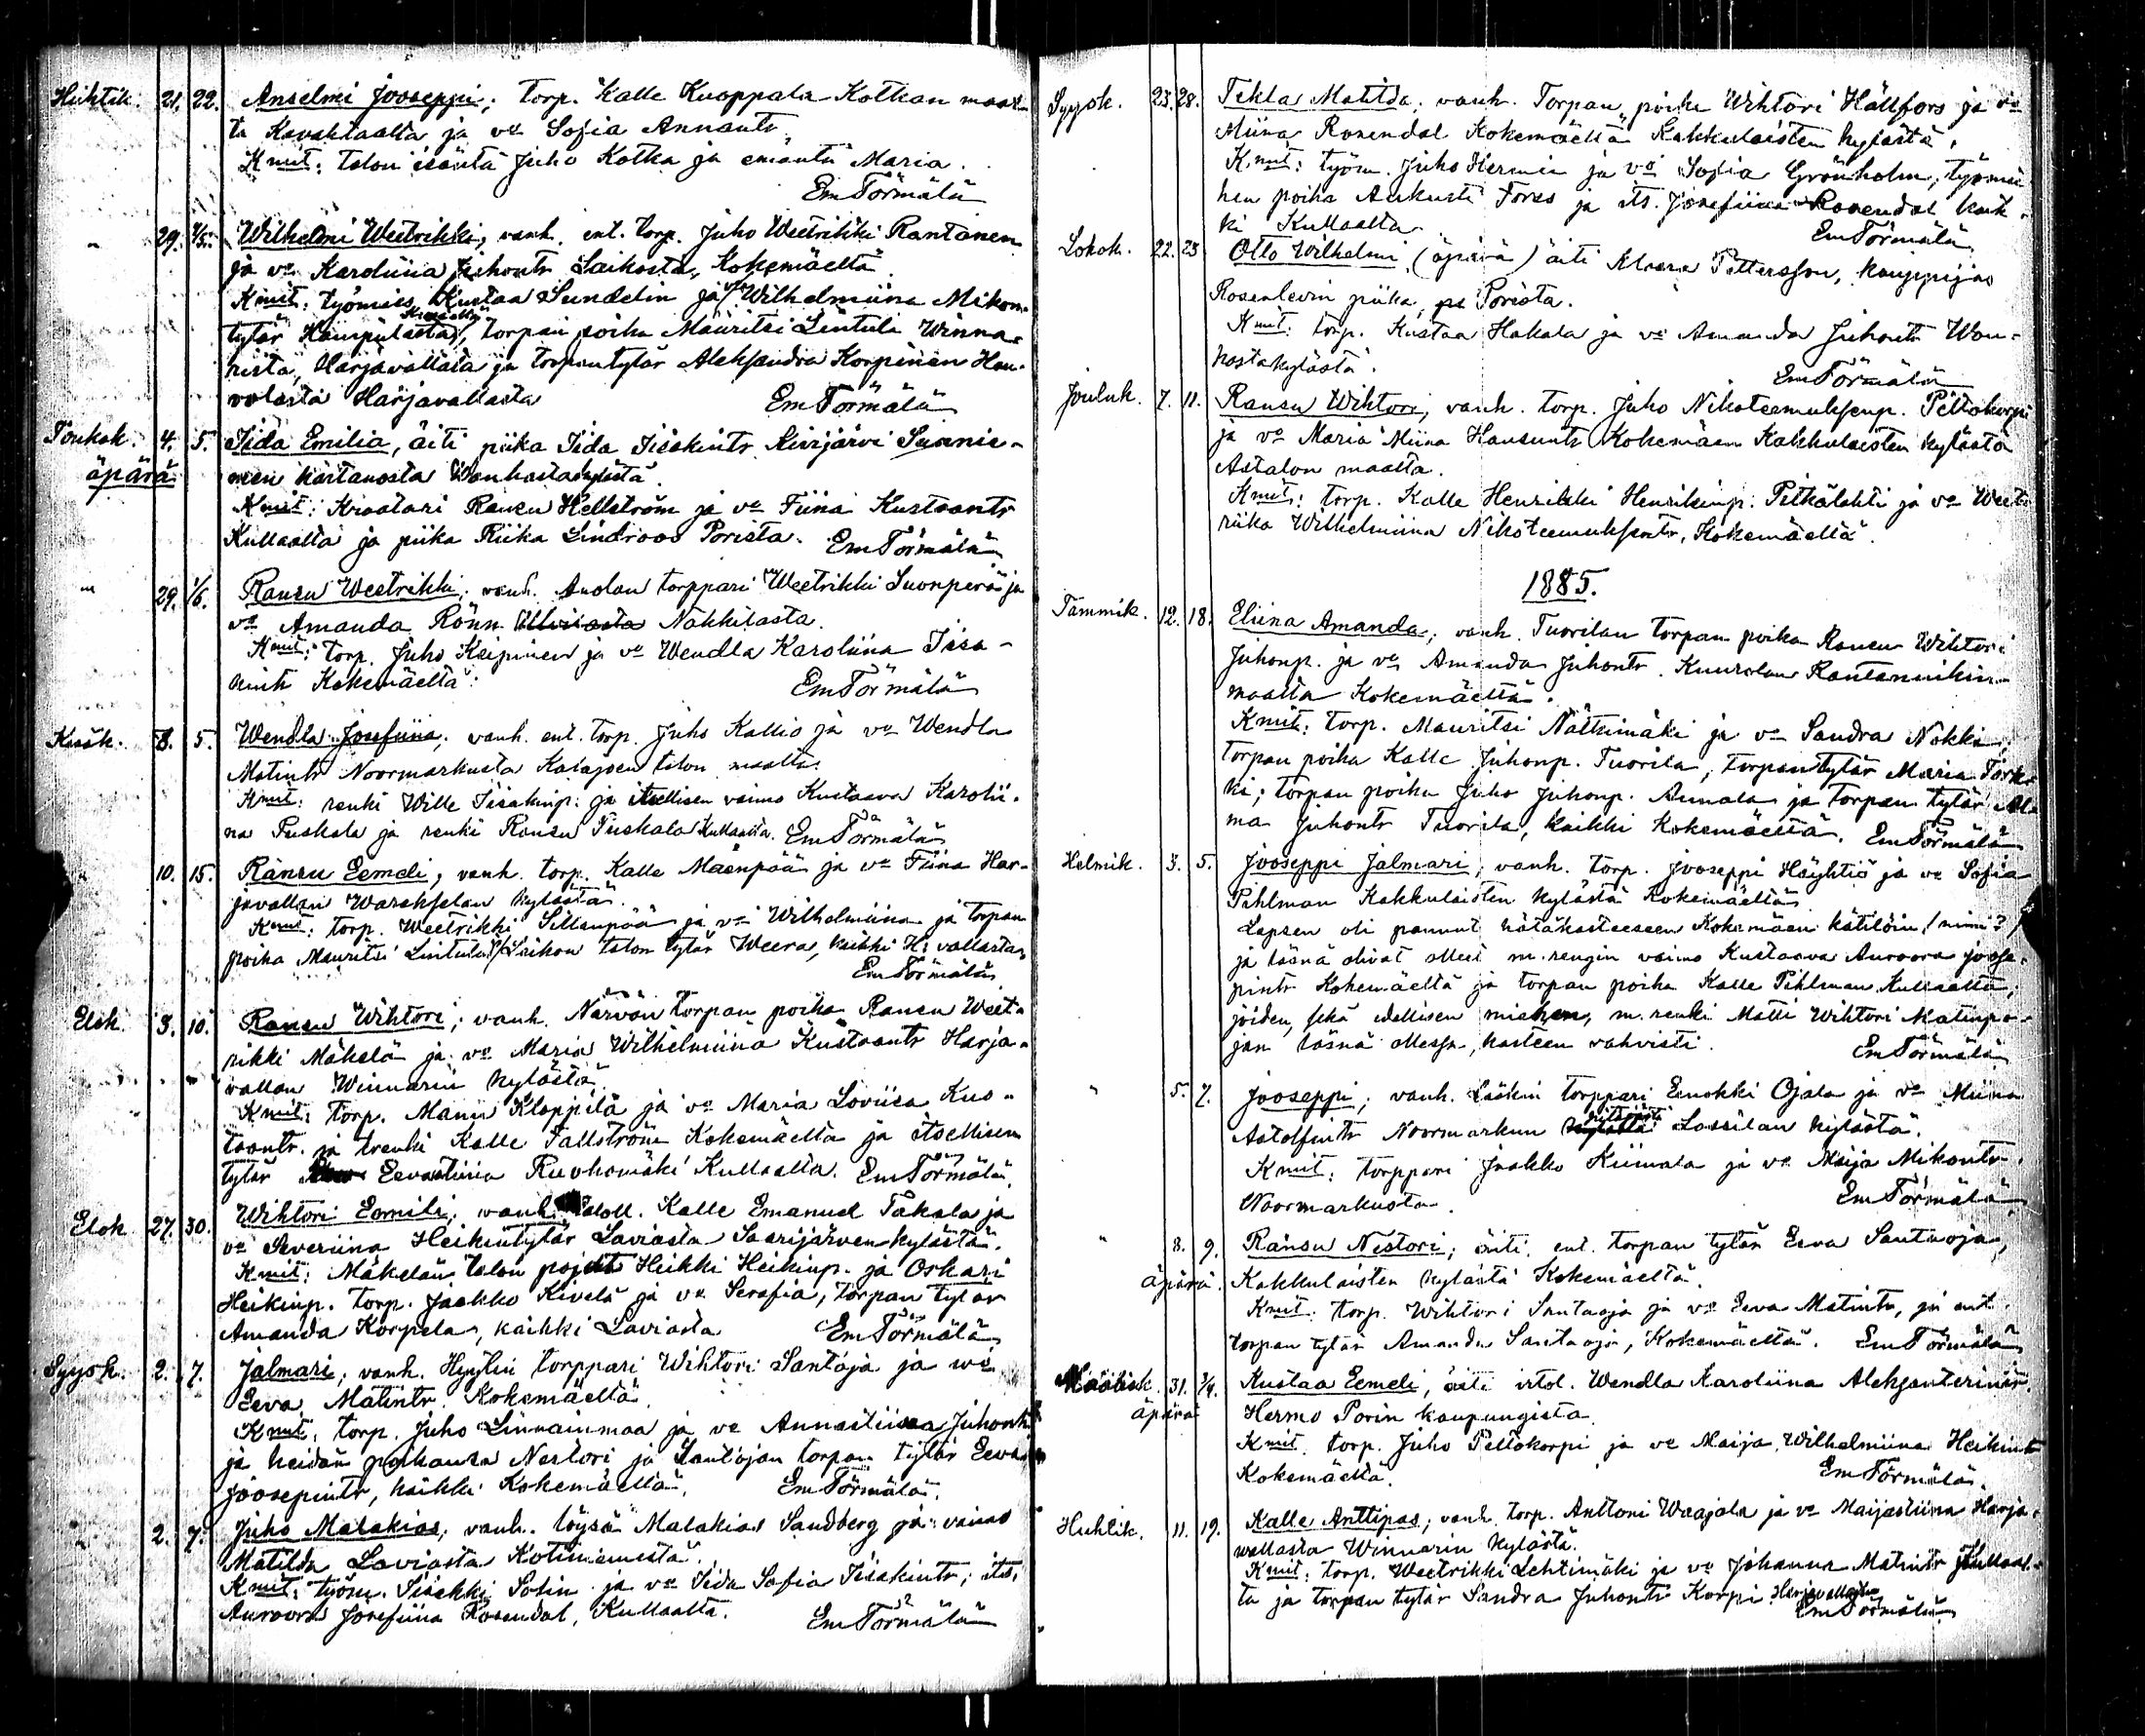 Huhtik. 21. 22. Anselmi Jooseppi; torp. Kalle Kuoppala Kotkan maas-
ta Kavahtaalta ja vo Sofia Annantr.
Kmit: talon isäntä Juho Kotka ja emäntä Maria.
Em Törmälä
" 29. 4/5. Wilhelmi Weetrikki, vanh. ent. torp. Juho Weetrikki Rantanen
ja vo Karoliina Juhontr Laikosta, Kokemäeltä
Kmit: työmies Kustaa Sundelin ja vo Wilhelmiina Mikon-
tytär Kampulasta, torpan poika Mauritsi Lintula Winna-
rista, Harjavallasta ja torpantytär Aleksandra Korpinen Hau-
volasta Harjavallasta Em Törmälä
Toukok. 4. 5. Iida Emilia, äiti piika Iida Iisakintr Kivijärvi Sunnie-
äpärä men kartanosta Wanhastakylästä.
Kmit: Kraatari Ransu Hellström ja vo Fiina Kustaantr
Kullaalta ja piika Riika Lindroos Porista. Em Törmälä
" 29. 1/6. Ransu Weetrikki; vanh. Anolan torppari Weetrikki Suonperä ja
vo Amanda Rönn Nakkilasta.
Kmit: torp. Juho Keipinen ja vo Wendla Karoliina Iisa-
kintr Kokemäeltä. Em Törmälä
Kesäk. 8. 5. Wendla Josefiina; vanh. ent. torp. Juho Kallio ja vo Wendla
Matintr Noormarkusta Katajoen talon maalta.
Kmit: renki Wille Iisakinp. ja itsellisen vaimo Kustaava Karolii-
na Puskala ja renki Ransu Puskala Kullaalta. Em Törmälä
10. 15. Ransu Eemeli; vanh. torp. Kalle Mäenpää ja vo Fiina Har-
javallan kylästä.
Kmit: torp. Weetrikki Sillanpää ja vo Wilhelmiina ja torpan
poika Mauritsi Lintula / Laikon talon tytär Weera, kaikki H:vallasta
Em Törmälä
Elok. 3. 10. Ransu Wihtori; vanh. Närvän torpan poika Ransu Weet-
rikki Mäkelä ja vo Maria Wilhelmiina Kustaantr Harja-
vallan Winnarin kylästä.
Kmit: torp. Manu Kloppilä ja vo Maria Loviisa Kus-
taantr. ja trenki Kalle Fallström Kokemäeltä ja itsellisen
tytär Eevastiina Ruohomäki Kullaalta. Em Törmälä.
Elok. 27. 30. Wihtori Eemili; vanh. taloll. Kalle Emanuel Takala ja
vo Severiina Heikintytär Laviasta Saarijärven kylästä.
Kmit: Mäkelän talon pojat Heikki Heikinp. ja Oskari
Heikinp. torp. Jaakko Kivelä ja vo Serafia, torpan tytär
Amanda Korpela, kaikki Laviasta Em Törmälä
Syysk. 2. 7. Jalmari, vanh. Hyytin torppari Wihtori Santaja ja vo
Eeva Matintr. Kokemäeltä.
Kmit: torp. Juho Linnainmaa ja vo Annastiina Juhontr
ja heidän poikansa Nestori ja Santojan torpan tytär Eeva
Joosepintr, kaikki Kokemäeltä. Em Törmälä.
" 2. 7. Juho Malakias, vanh. löysä Malakias Sandberg ja vaimo
Matilda Laviasta Kotiniemestä.
Kmit: työm. Iisakki Sotin ja vo Iida Sofia Iisakintr; its.
Auroora Josefiina Rosendal, Kullaalta. Em Törmälä
Syysk. 23. 28. Tekla Matilda; vanh. Torpan poika Wihtori Hällfors ja vo
Miina Rosendal Kokemäeltä Kakkulaisten kylästä.
Kmit: työm. Juho Hermin ja vo Sofia Grönholm, työmie-
hen poika Aukusti Fors ja its. Josefiina Rosendal kaik-
ki Kullaalta. Em Törmälä
Lokok. 22. 23. Otto Wilhelmi (äpärä) äiti Pettersson, kauppijas
Rosenlevin piika, Porista.
Kmit: torp. Kustaa Hakala ja vo Amanda Juhontr Wan-
hastakylästä. Em Törmälä
Jouluk. 7. 11. Ransu Wihtori; vanh. torp. Juho Nikoteemuksenp. Peltokorpi
ja vo Maria Miina Hansuntr Kokemäen Kakkulaisten kylästä
Astalon maalta.
Kmit: torp. Kalle Henrikki Henrikinp. Pitkälahti ja vo Weet-
riika Wilhelmiina Nikoteemuksentr, Kokemäeltä.
1885.
Tammik. 12. 18. Eliina Amanda; vanh. Tuorilan torpan poika Ransu Wihtori
Juhonp. ja vo Amanda Juhontr. Kuurolan Rantamikin
maalta Kokemäeltä.
Kmit: torp. Mauritsi Nättimäki ja vo Sandra Nokki;
torpan poika Kalle Juhonp. Tuorila, torpan tytär Maria Tork-
ki; torpan poika Juho Juhonp. Annala ja torpan tytär Al-
ma Juhontr Tuorila, kaikki Kokemäeltä. Em Törmälä
Helmik. 3. 5. Jooseppi Jalmari; vanh. torp. Jooseppi Häyhtiö ja vo Sofia
Pihlman Kakkulaisten kylästä Kokemäeltä
Lapsen oli pannut hätäkasteeseen Kokemäen kätilöin (nimi?)
ja läsnä olivat olleet m.rengin vaimo Kustaava Auroora Joose-
pintr Kokemäeltä ja torpan poika Kalle Pihlman Kullaalta,
joiden, sekä edellisen miehen, m.renki Matti Wihtori Matinpo-
jan läsnä ollessa, kasteen vahvisti. Em Törmälä
" 5. 7. Jooseppi; vanh. Lääkin torppari Eenokki Ojala ja vo Miina
Astolfintr Noormarkun Lassilan kylästä.
Kmit: torppari Jaakko Kiimala ja vo Maija Mikontr.
Noormarkusta. Em Törmälä
" 8. 9. Ransu Nestori; äiti ent. torpan tytär Eeva Santaoja,
äpärä. Kakkulaisten kylästä Kokemäeltä.
Kmit: torp. Wihtori Santaoja ja vo Eeva Matintr, ja ent.
torpan tytär Amanda Santaoja, Kokemäeltä. Em Törmälä
Maalisk. 31. 3/4. Kustaa Eemeli, äiti irtol. Wendla Karoliina Aleksanterintr.
äpärä Hermo Porin kaupungista
Kmit. torp. Juho Peltokorpi ja vo Maija Wilhelmiina Heikintr
Kokemäeltä. Em Törmälä.
Huhtik. 11. 19. Kalle Anttipas; vanh. torp. Anttoni Waajala ja vo Maijastiina Harja-
vallasta Winnarin kylästä.
Kmit: torp. Weetrikki Lehtimäki ja vo Johanna Matintr Kullaal-
ta ja torpan tytär Sandra Juhontr Korpi Harjavallasta
Em Törmälä